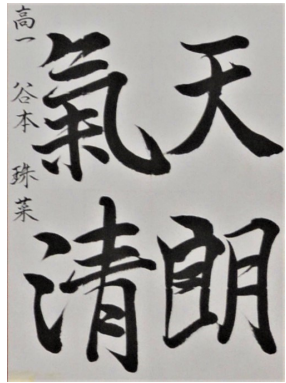 天朗
氣清
高一 谷本 珠菜